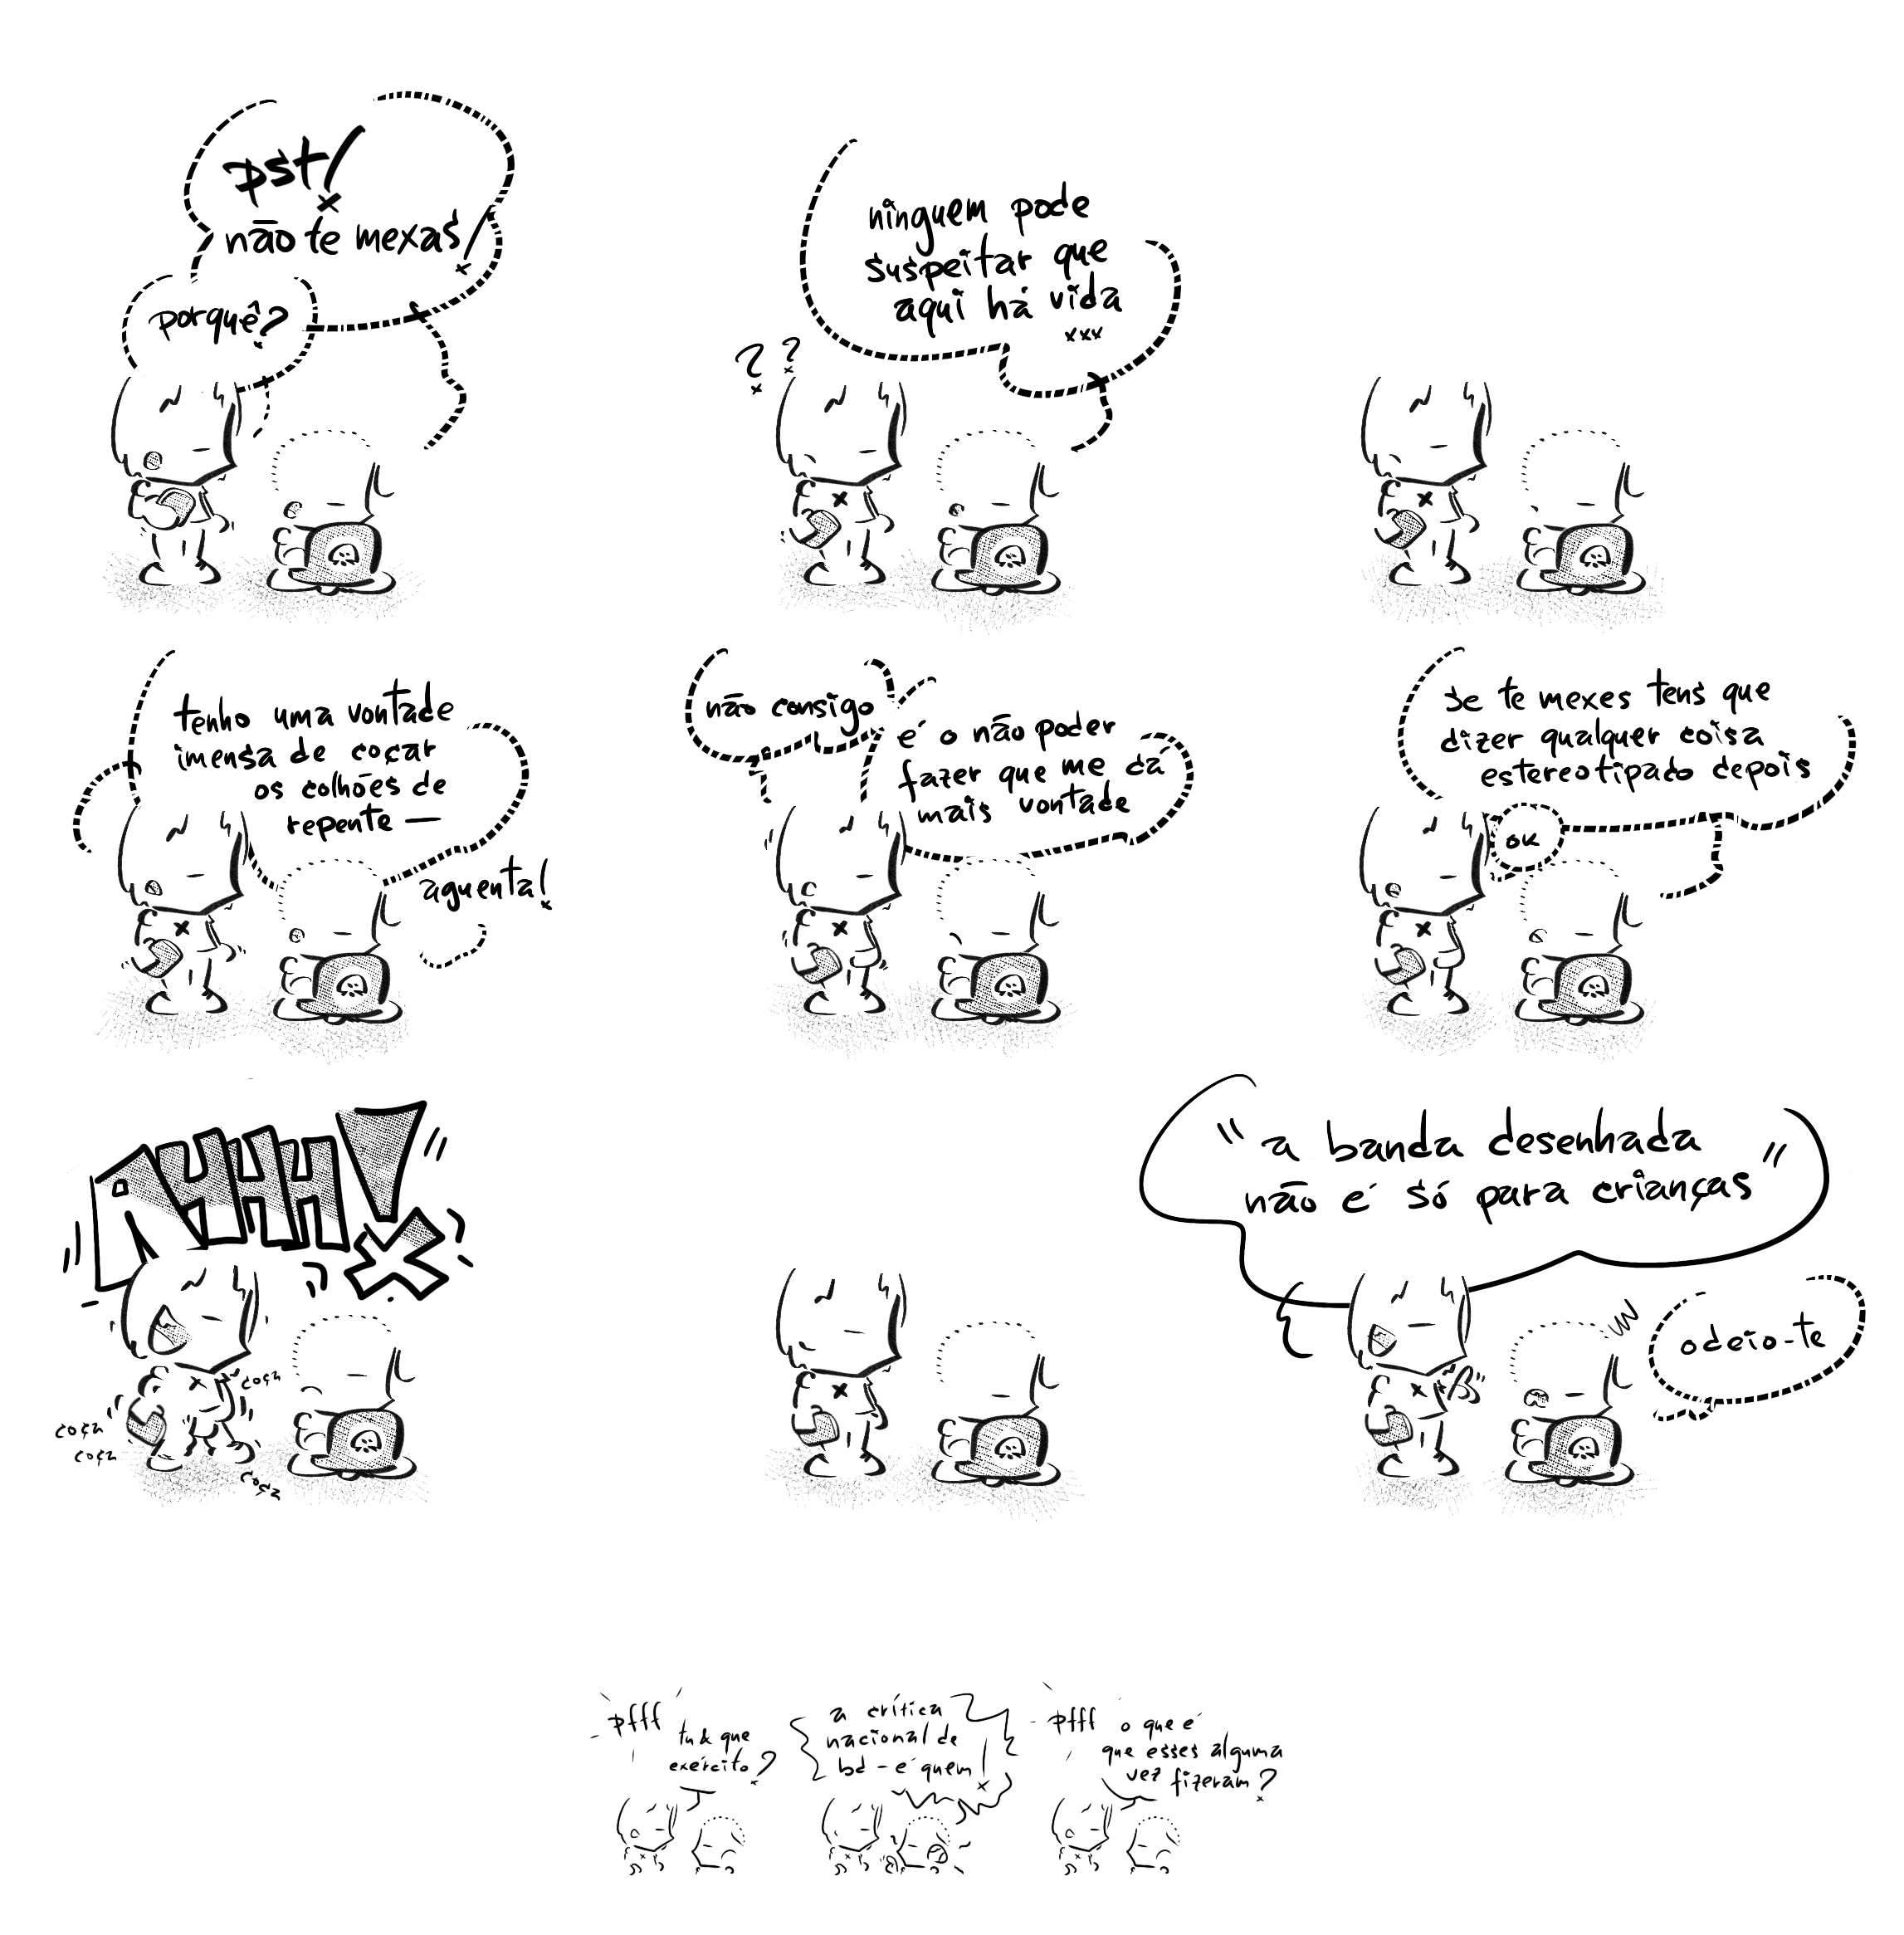 pst!
não te mexas!
porquê?
ninguem pode
suspeitar que
aqui há vida
xxx
? ?
tenho uma vontade
imensa de coçar
os colhões de
repente —
aguenta!
não consigo
é o não poder
fazer que me dá
mais vontade
se te mexes tens que
dizer qualquer coisa
estereotipado depois
ok
AHHH!
coça
coça
coça
coça
"a banda desenhada
não é só para crianças"
odeio-te
pfff
tu & que
exército?
a crítica
nacional de
bd - é quem!
pfff
o que é
que esses alguma
vez fizeram?